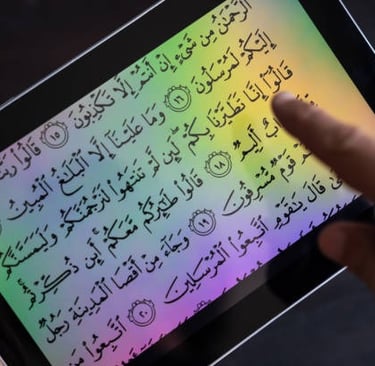 الرَّحْمَٰنُ مِن شَيْءٍ إِنْ أَنتُمْ إِلَّا تَكْذِبُونَ ١٥ قَالُوا
إِلَيْكُمْ لَمُرْسَلُونَ ١٦ وَمَا عَلَيْنَا إِلَّا الْبَلَٰغُ الْمُبِينُ
قَالُوٓا إِنَّا تَطَيَّرْنَا بِكُمْ لَئِن لَّمْ تَنتَهُوا لَنَرْجُمَنَّكُمْ وَلَيَمَسَّنَّكُم
أَلِيمٌ ١٨ قَالُوا طَٰٓئِرُكُم مَّعَكُمْ أَئِن ذُكِّرْتُم
قَوْمٌ مُّسْرِفُونَ ١٩ وَجَآءَ مِنْ أَقْصَا الْمَدِينَةِ رَجُلٌ
قَالَ يَٰقَوْمِ اتَّبِعُوا الْمُرْسَلِينَ ٢٠ اتَّبِعُوا مَن